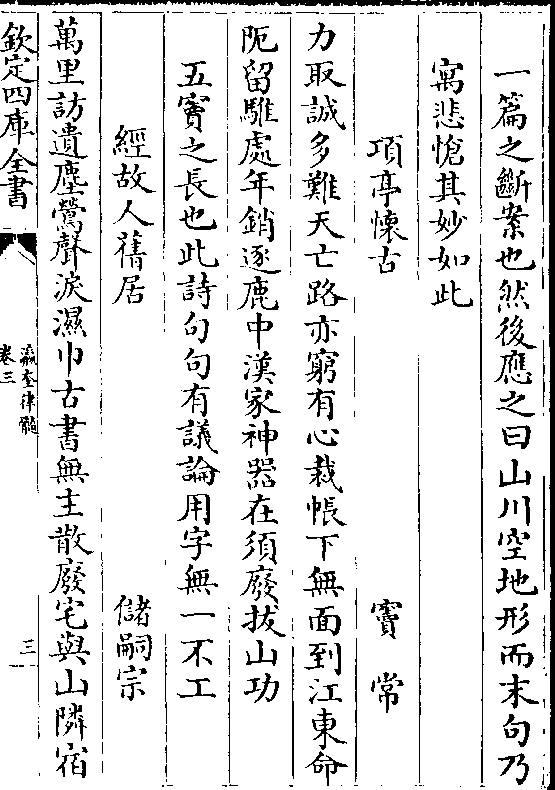 一篇之斷案也然後應之曰山川空地形而末句乃
寓悲愴其妙如此
項亭懷古　竇常
力取誠多難天亡路亦窮有心裁帳下無面到江東命
阨留騅處年銷逐鹿中漢家神器在須廢拔山功
五竇之長也此詩句句有議論用字無一不工
經故人舊居　儲嗣宗
萬里訪遺塵鶯聲淚濕巾古書無主散廢宅與山隣宿
欽定四庫全書
瀛奎律髓
卷三
三